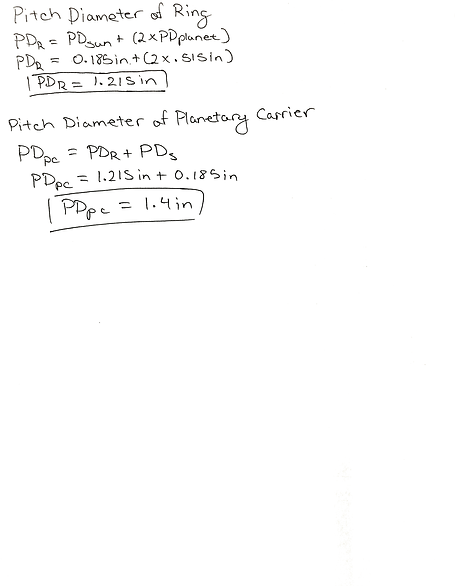 Pitch Diameter of Ring
PD_R = PD_sun + (2 x PD_planet)
PD_R = 0.185in + (2 x .515in)
PD_R = 1.215in
Pitch Diameter of Planetary Carrier
PD_pc = PD_R + PD_s
PD_pc = 1.215in + 0.185in
PD_pc = 1.4in